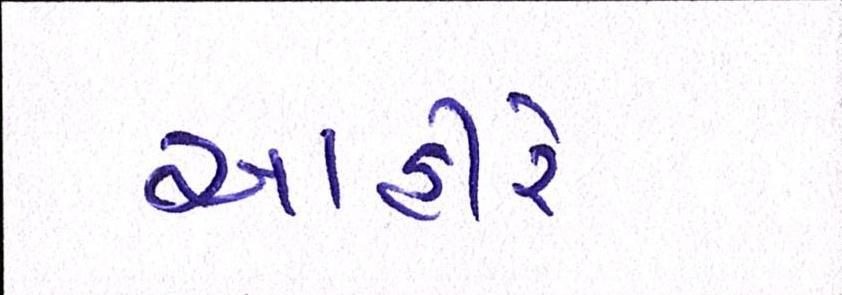 આહીરે